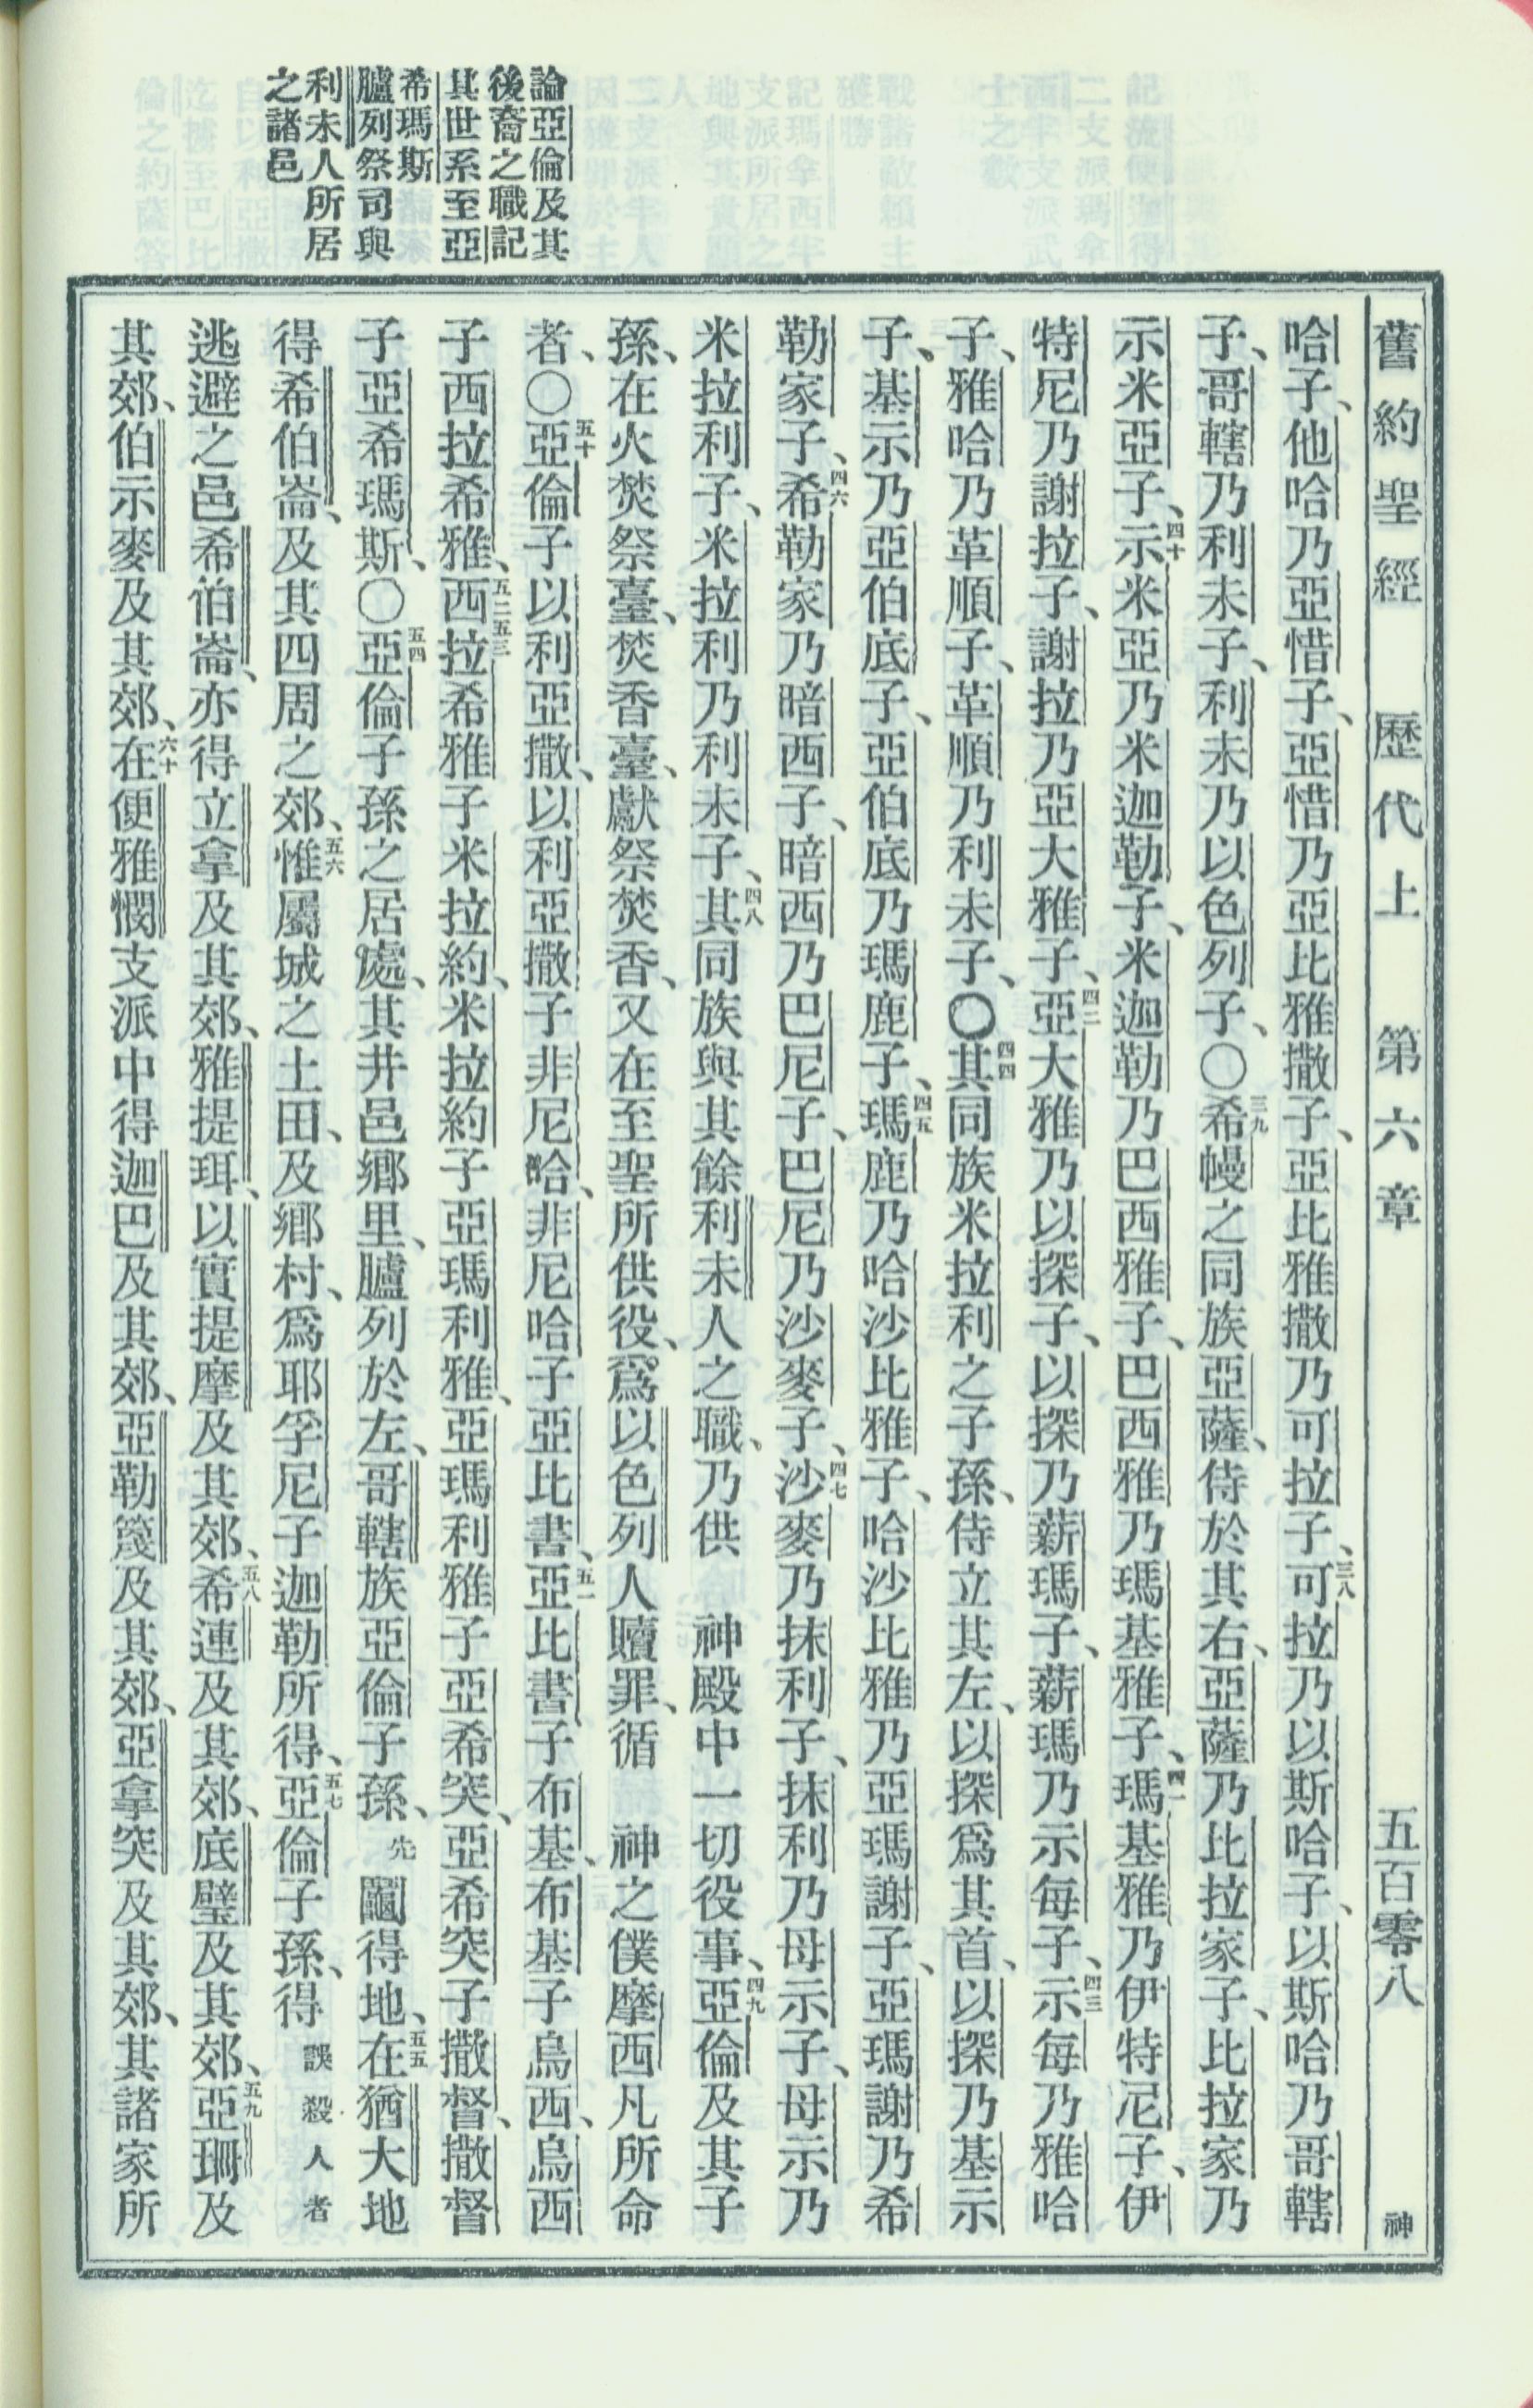 舊約聖經　歷代上　第六章　五百零八　神
哈子、他哈乃亞惜子、亞惜乃亞比雅撒子、亞比雅撒乃可拉子、三八可拉乃以斯哈子、以斯哈乃哥轄
子、哥轄乃利未子、利未乃以色列子、〇三九希幔之同族亞薩、侍於其右、亞薩乃比拉家子、比拉家乃
示米亞子、四十示米亞乃米迦勒子、米迦勒乃巴西雅子、巴西雅乃瑪基雅子、四一瑪基雅乃伊特尼子、伊
特尼乃謝拉子、謝拉乃亞大雅子、四二亞大雅乃以探子、以探乃薪瑪子、薪瑪乃示每子、四三示每乃雅哈
子、雅哈乃革順子、革順乃利未子、〇四四其同族米拉利之子孫、侍立其左、以探爲其首、以探乃基示
子、基示乃亞伯底子、亞伯底乃瑪鹿子、四五瑪鹿乃哈沙比雅子、哈沙比雅乃亞瑪謝子、亞瑪謝乃希
勒家子、四六希勒家乃暗西子、暗西乃巴尼子、巴尼乃沙麥子、四七沙麥乃抹利子、抹利乃母示子、母示乃
米拉利子、米拉利乃利未子、四八其同族與其餘利未人之職、乃供　神殿中一切役事、四九亞倫及其子
孫、在火焚祭臺、焚香臺、獻祭焚香、又在至聖所供役、爲以色列人贖罪、循　神之僕摩西凡所命
者、〇五十亞倫子以利亞撒、以利亞撒子非尼哈、非尼哈子亞比書、五一亞比書子布基、布基子烏西、烏西
子西拉希雅、五二五三西拉希雅子米拉約、米拉約子亞瑪利雅、亞瑪利雅子亞希突、亞希突子撒督、撒督
子亞希瑪斯、〇五四亞倫子孫之居處、其井邑鄉里、臚列於左、哥轄族亞倫子孫、先鬮得地、五五在猶大地
得希伯崙、及其四周之郊、五六惟屬城之土田、及鄉村、爲耶孚尼子迦勒所得、五七亞倫子孫、得誤殺人者
逃避之邑希伯崙、亦得立拿及其郊、雅提珥、以實提摩及其郊、五八希連及其郊、底璧及其郊、五九亞珊及
其郊、伯示麥及其郊、六十在便雅憫支派中得迦巴及其郊、亞勒篾及其郊、亞拿突及其郊、其諸家所
論亞倫及其
後裔之職記
其世系至亞
希瑪斯
臚列祭司與
利未人所居
之諸邑